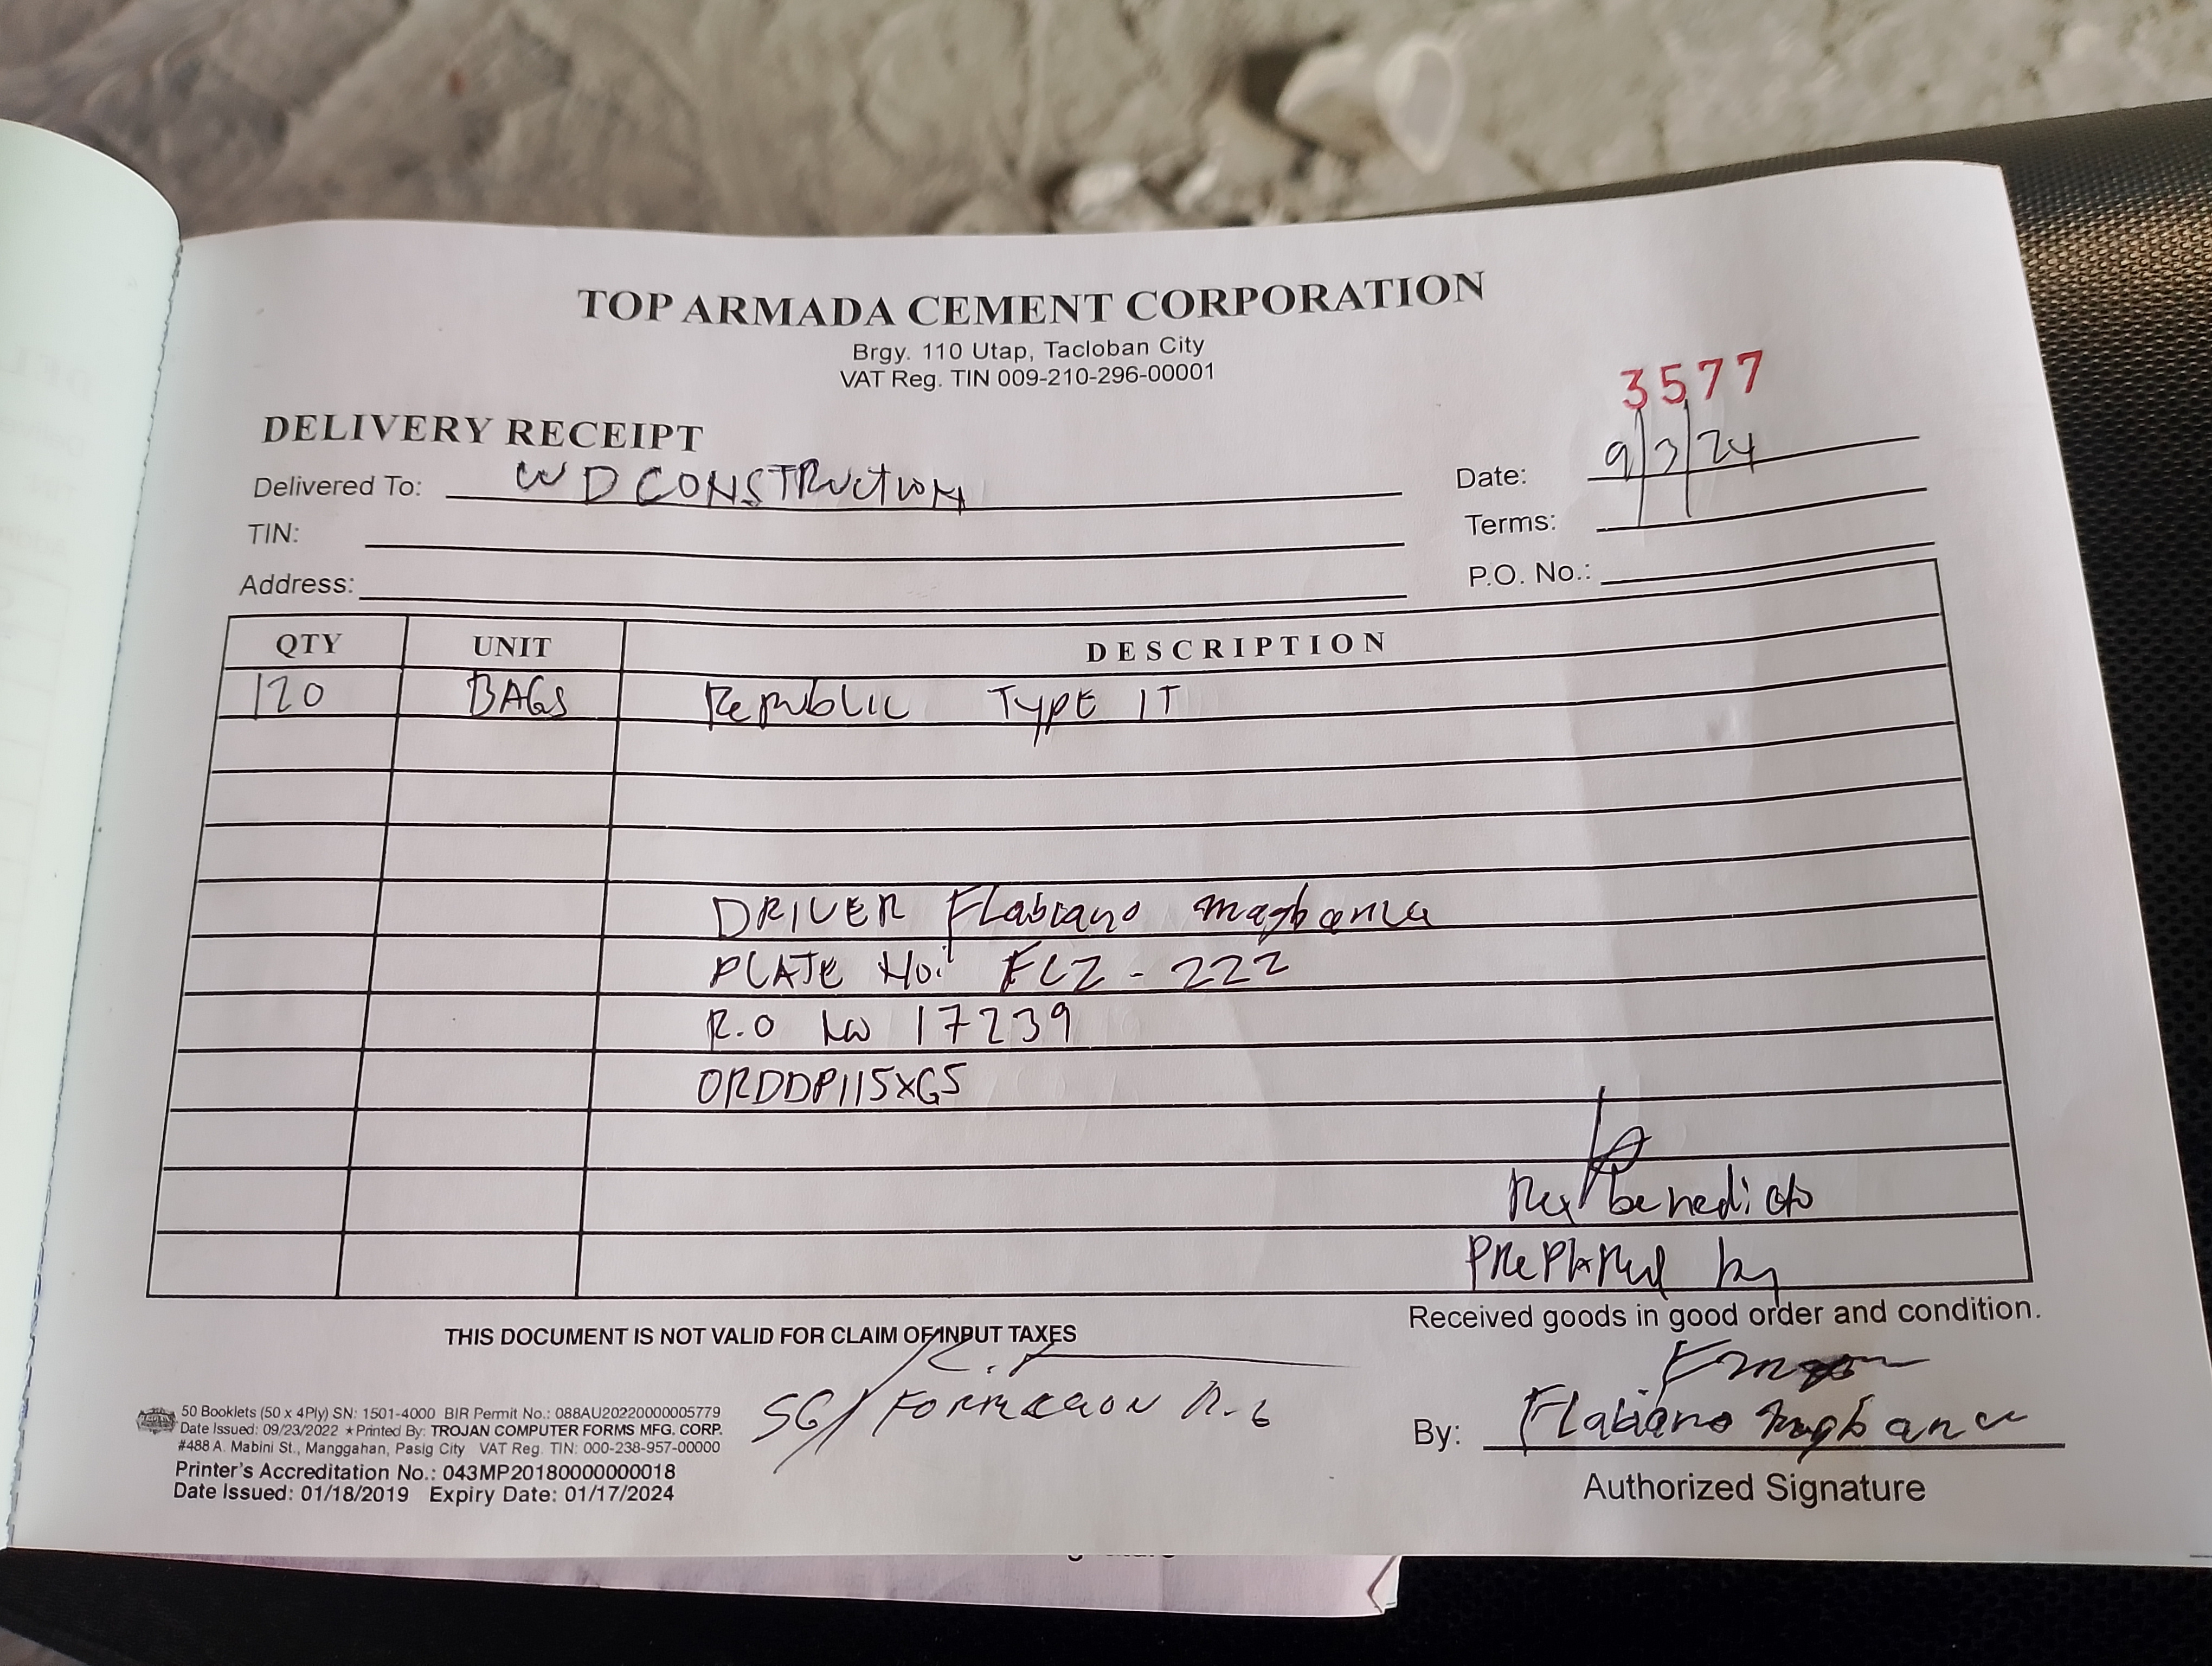 TOP ARMADA CEMENT CORPORATION
Brgy. 110 Utap, Tacloban City
VAT Reg. TIN 009-210-296-00001
3577
DELIVERY RECEIPT
Delivered To: WD CONSTRUCTION
Date: 9/3/24
TIN:
Terms:
Address:
P.O. No.:
QTY UNIT DESCRIPTION
120 BAGS Republic Type 1T
DRIVER Flabiano magbanua
PLATE No: FCZ-222
R.O No 17239
ORDDP115XG5
Rex benedicto
Prepared by
Received goods in good order and condition.
THIS DOCUMENT IS NOT VALID FOR CLAIM OF INPUT TAXES
SG/ FORMACION R. G
By: Flabiano magbanua
Authorized Signature
50 Booklets (50 x 4Ply) SN: 1501-4000 BIR Permit No.: 088AU20220000005779
Date Issued: 09/23/2022 ★Printed By: TROJAN COMPUTER FORMS MFG. CORP.
#488 A. Mabini St., Manggahan, Pasig City VAT Reg. TIN: 000-238-957-00000
Printer's Accreditation No.: 043MP20180000000018
Date Issued: 01/18/2019 Expiry Date: 01/17/2024